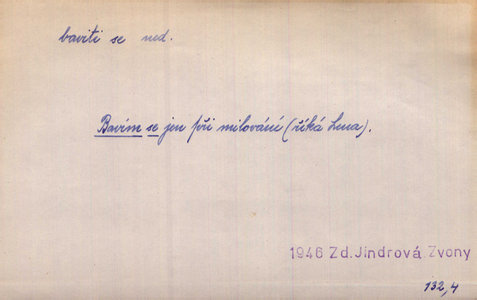 baviti se ned.
Bavím se jen při milování (říká Lena).
1946 Zd. Jindrová Zvony
132,4